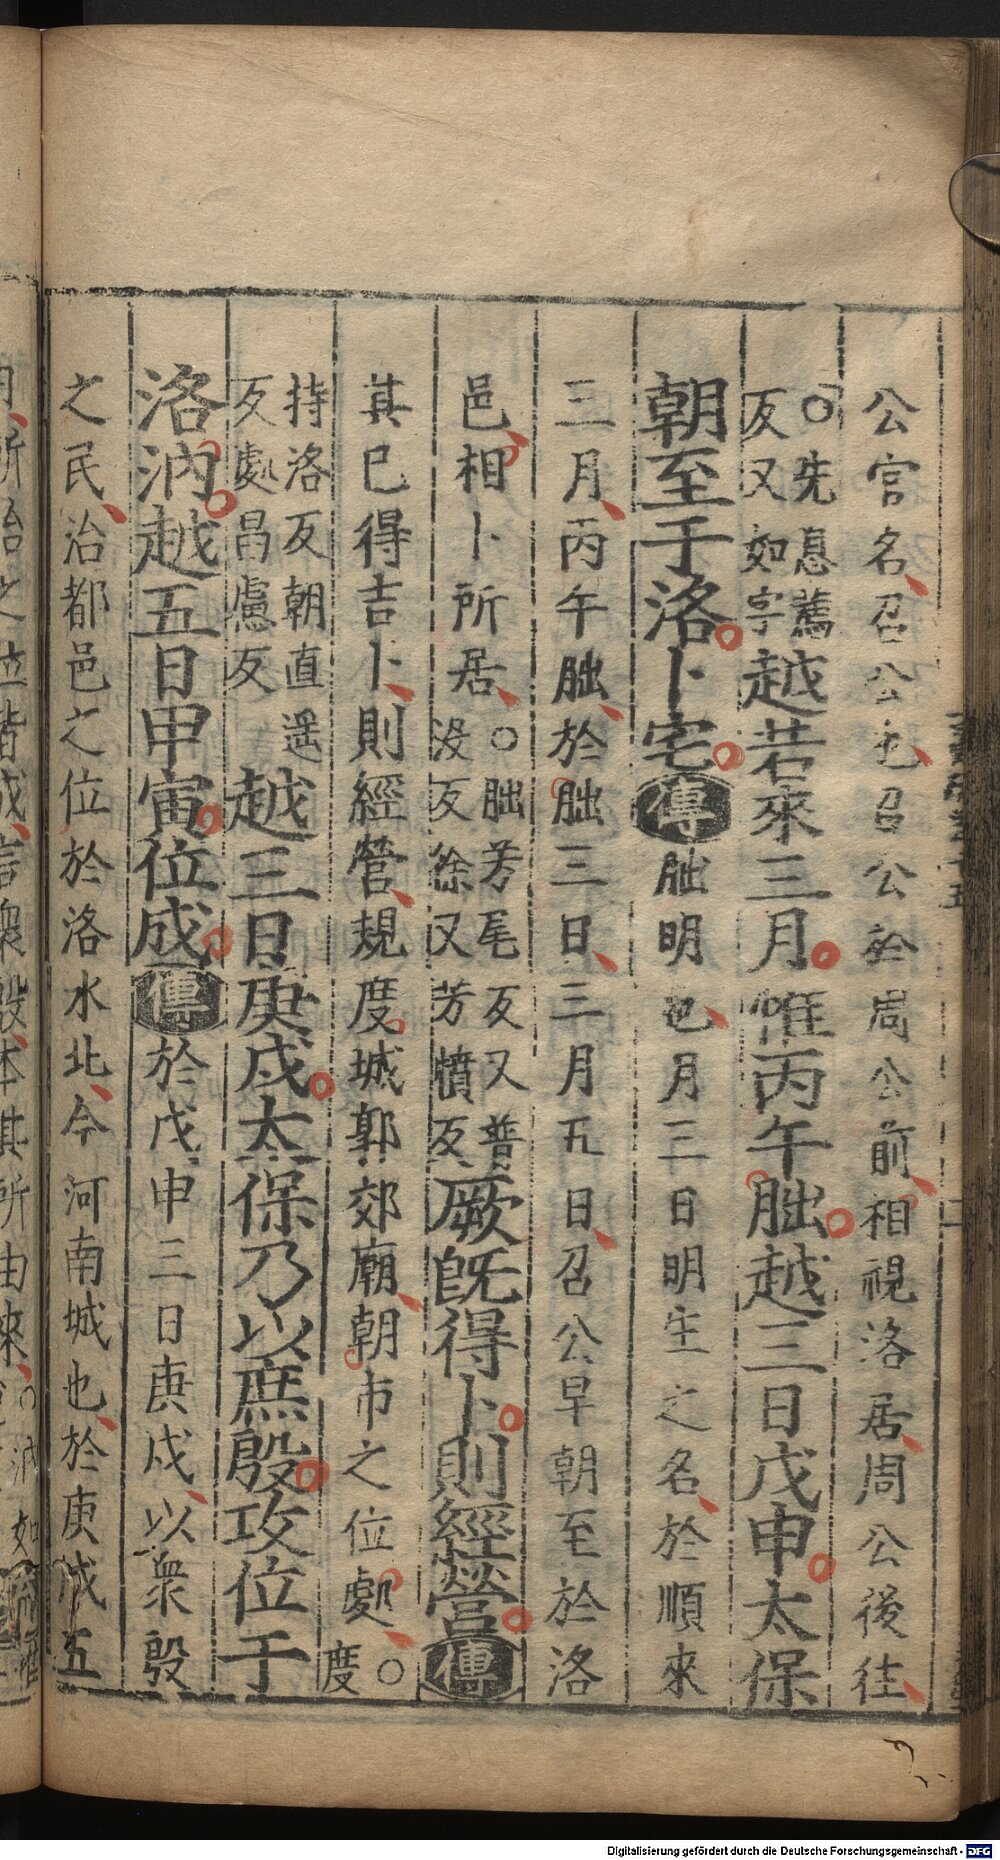 公官名召公也召公於周公前相視洛居周公後往
○先悉薦
反又如字越若來三月惟丙午朏越三日戊申太保
朝至于洛卜宅傳朏明也月三日明生之名於順來
三月丙午朏於朏三日三月五日召公早朝至於洛
邑相卜所居○朏芳尾反又普
没反徐又芳憤反厥既得卜則經營傳
其已得吉卜則經營規度城郭郊廟朝市之位處○度
持洛反朝直遥
反處昌慮反越三日庚戌太保乃以庶殷攻位于
洛汭越五日甲寅位成傳於戊申三日庚戌以衆殷
之民治都邑之位於洛水北今河南城也於庚戌五
Digitalisierung gefördert durch die Deutsche Forschungsgemeinschaft - DFG